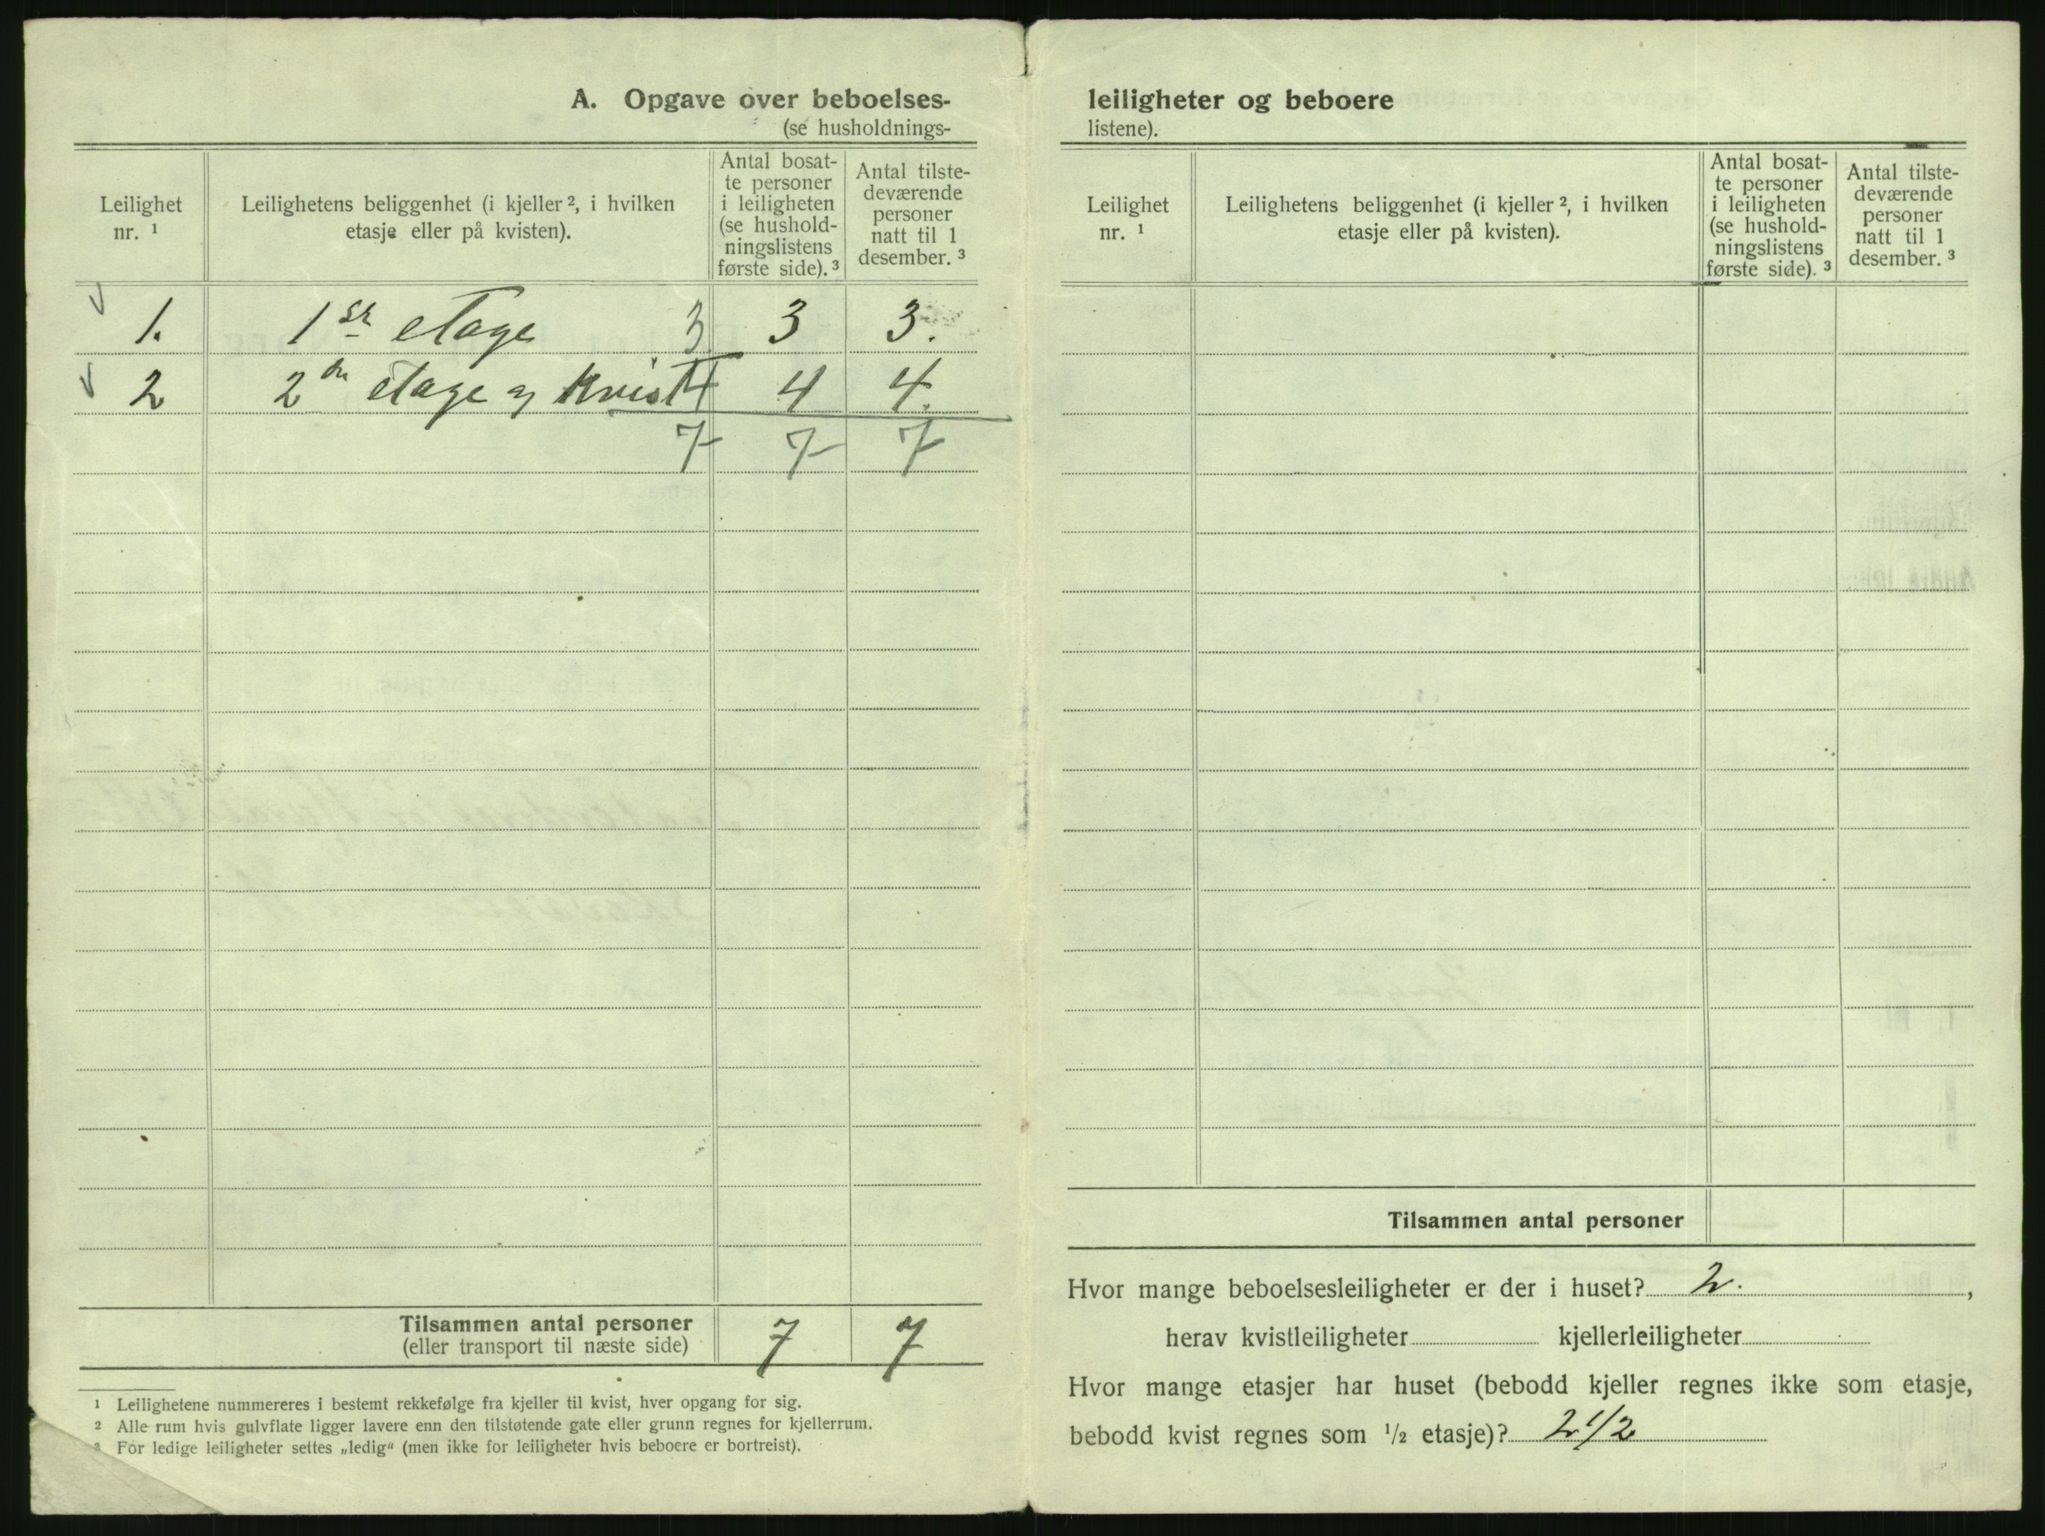 A. Opgave over beboelses-
(se husholdnings-
Leilighet
nr. ¹
Leilighetens beliggenhet (i kjeller ², i hvilken
etasje eller på kvisten).
Antal bosat-
te personer
i leiligheten
(se hushold-
ningslistens
første side). ³
Antal tilste-
deværende
personer
natt til 1
desember. ³
1. 1ste etage 3 3 3.
2 2den etage og kvist 4 4 4.
7 7 7
Tilsammen antal personer 7 7
(eller transport til næste side)
¹ Leilighetene nummereres i bestemt rekkefølge fra kjeller til kvist, hver opgang for sig.
² Alle rum hvis gulvflate ligger lavere enn den tilstøtende gate eller grunn regnes for kjellerrum.
³ For ledige leiligheter settes „ledig“ (men ikke for leiligheter hvis beboere er bortreist).
leiligheter og beboere
listene).
Leilighet
nr. ¹
Leilighetens beliggenhet (i kjeller ², i hvilken
etasje eller på kvisten).
Antal bosat-
te personer
i leiligheten
(se hushold-
ningslistens
første side). ³
Antal tilste-
deværende
personer
natt til 1
desember. ³
Tilsammen antal personer
Hvor mange beboelsesleiligheter er der i huset? 2.,
herav kvistleiligheter kjellerleiligheter
Hvor mange etasjer har huset (bebodd kjeller regnes ikke som etasje,
bebodd kvist regnes som ½ etasje)? 2 1/2